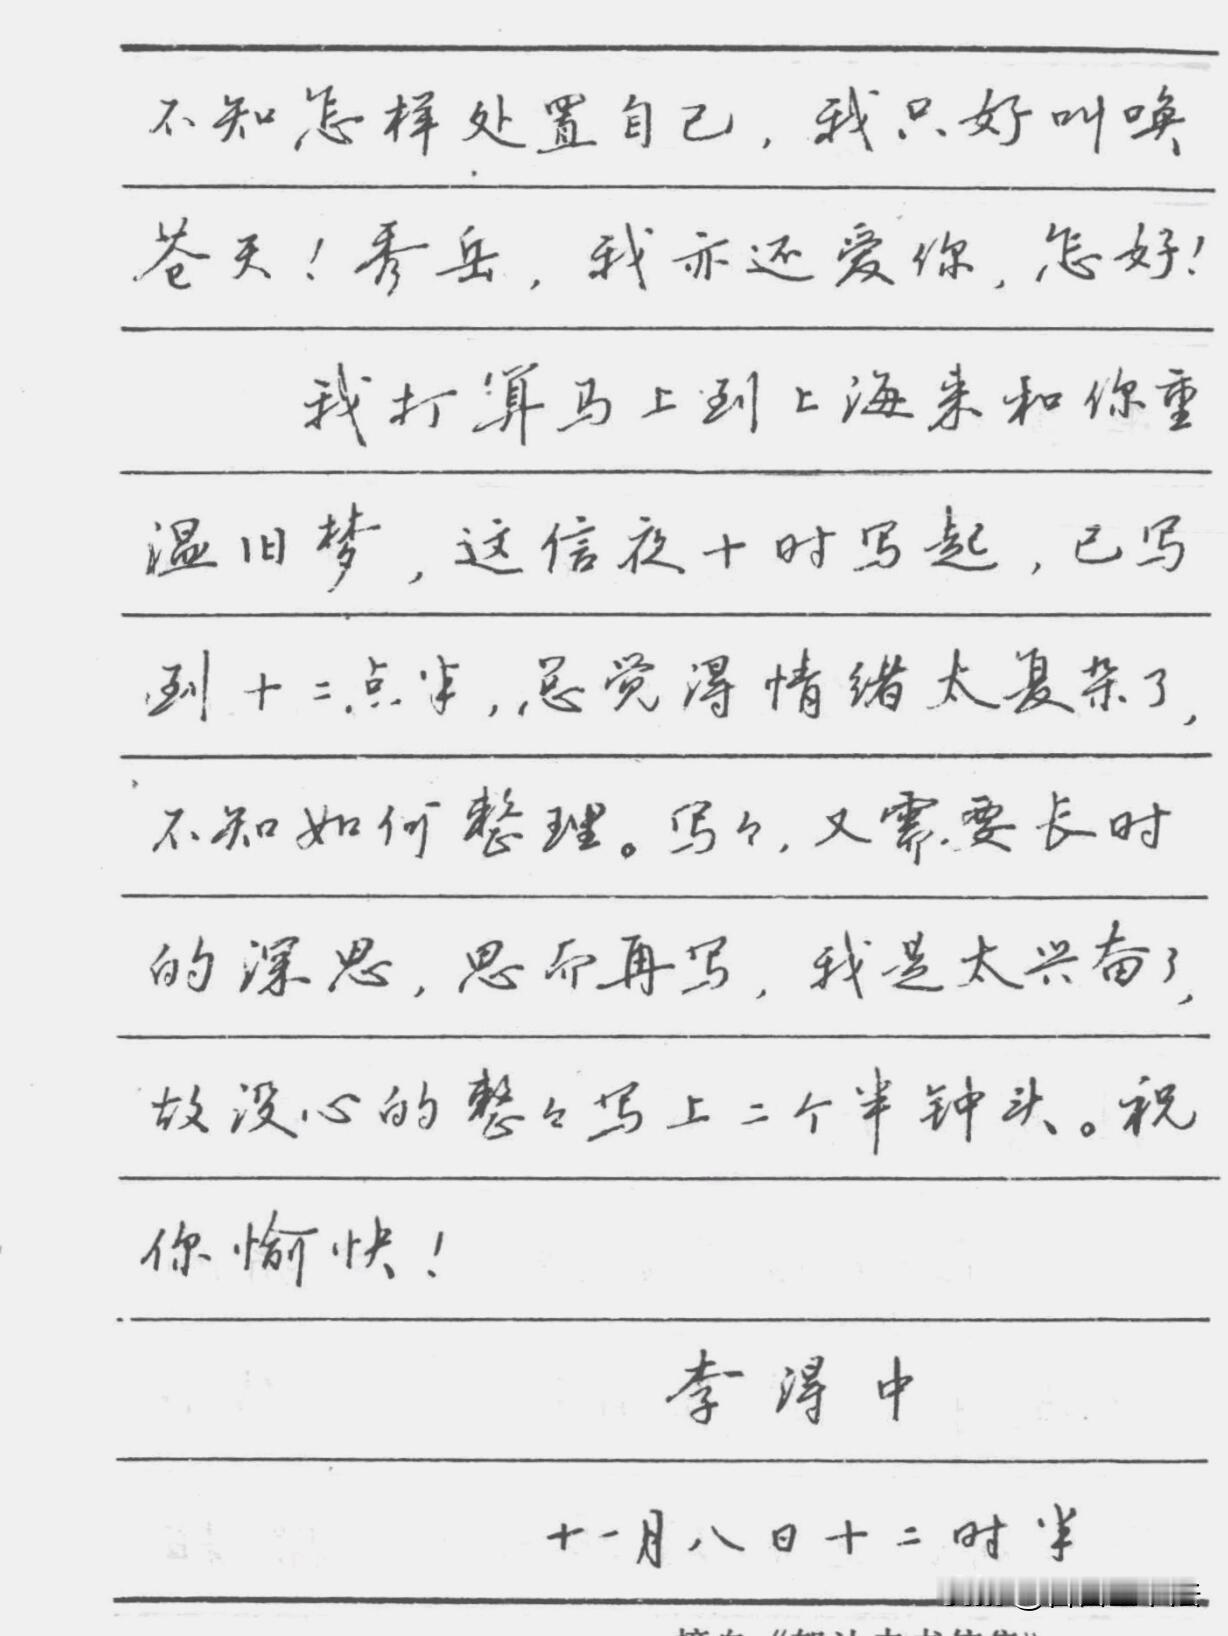 不知怎样处置自己，我只好叫唤
苍天！秀岳，我亦还爱你，怎好！
我打算马上到上海来和你重
温旧梦，这信夜十时写起，已写
到十二点半，总觉得情绪太复杂了，
不知如何整理。写々，又需要长时
的深思，思而再写，我是太兴奋了，
故没心的整々写上二个半钟头。祝
你愉快！
李得中
十一月八日十二时半